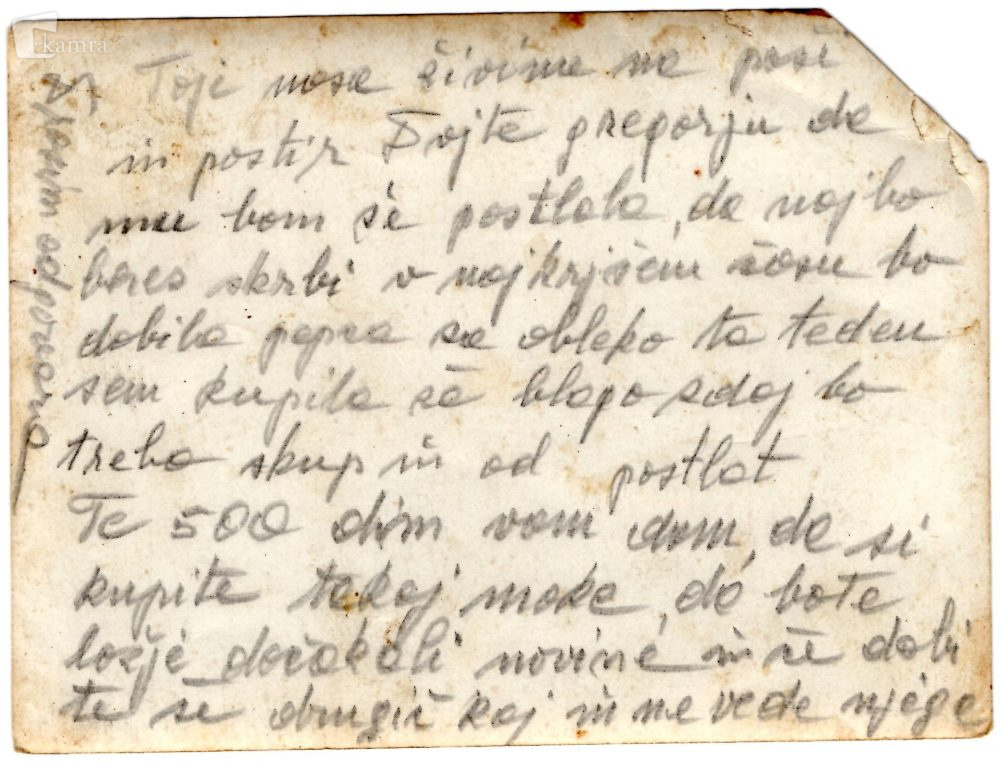 kamra
Toji nasa živima na paši
in postir Dojte gregorju da
mu bom še postlala, da naj bo
bres skrbi v najkrjšem času bo
dobila pepca za obleko ta teden
sem kupila že blago sdaj bo
treba skup in od postlat
Te 500 din vam dam, da si
kupite takoj moke, da bote
ložje dočakali novine in še dobi
te še drugič kaj in ne vede njega
Sprosim odgovora